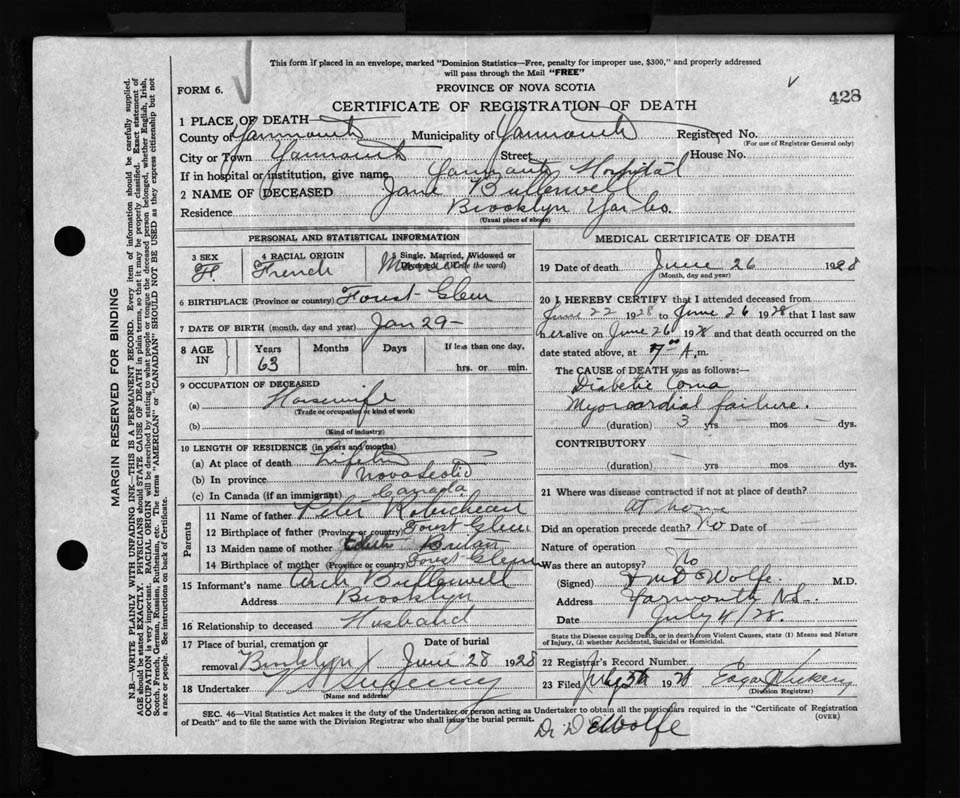 This form if placed in an envelope, marked "Dominion Statistics—Free, penalty for improper use, $300," and properly addressed
will pass through the Mail "FREE"
FORM 6.
PROVINCE OF NOVA SCOTIA
428
CERTIFICATE OF REGISTRATION OF DEATH
1 PLACE OF DEATH
County of Yarmouth Municipality of Yarmouth Registered No.
(For use of Registrar General only)
City or Town Yarmouth Street House No.
If in hospital or institution, give name Yarmouth Hospital
2 NAME OF DECEASED Jane Bullerwell
Residence Brooklyn Yar Co.
(Usual place of above)
PERSONAL AND STATISTICAL INFORMATION
3 SEX 4 RACIAL ORIGIN 5 Single, Married, Widowed or
Divorced (Write the word)
F. French
6 BIRTHPLACE (Province or country) Forest Glen
7 DATE OF BIRTH (month, day and year) Jan 29 —
8 AGE IN Years Months Days If less than one day,
63 hrs. or min.
9 OCCUPATION OF DECEASED
(a) Housewife
(Trade or occupation or kind of work)
(b)
(Kind of industry)
10 LENGTH OF RESIDENCE (in years and months)
(a) At place of death
(b) In province Nova Scotia
(c) In Canada (if an immigrant) Canada
Parents
11 Name of father Peter
12 Birthplace of father (Province or country) Forest Glen
13 Maiden name of mother Edith
14 Birthplace of mother (Province or country) Forest Glen
15 Informant's name Bullerwell
Address Brooklyn
16 Relationship to deceased Husband
17 Place of burial, cremation or Date of burial
removal Brooklyn June 28 1928
18 Undertaker V S Sweeny
(Name and address)
MEDICAL CERTIFICATE OF DEATH
19 Date of death June 26 1928
(Month, day and year)
20 I HEREBY CERTIFY that I attended deceased from
June 22 1928 to June 26 1928 that I last saw
her alive on June 26 1928 and that death occurred on the
date stated above, at 7 00 A.m.
The CAUSE of DEATH was as follows:—
Diabetic Coma
Myocardial failure.
(duration) 3 yrs mos — dys.
CONTRIBUTORY
(duration) — yrs mos dys.
21 Where was disease contracted if not at place of death?
At home
Did an operation precede death? No Date of —
Nature of operation
Was there an autopsy? No
(Signed) DeWolfe M.D.
Address Yarmouth N.S.
Date July 4/28.
State the Disease causing Death, or in death from Violent Causes, state (1) Means and Nature
of Injury, (2) whether Accidental, Suicidal or Homicidal.
22 Registrar's Record Number
23 Filed July 5th 1928
(Division Registrar)
SEC. 46—Vital Statistics Act makes it the duty of the Undertaker or person acting as Undertaker to obtain all the particulars required in the "Certificate of Registration
of Death" and to file the same with the Division Registrar who shall issue the burial permit.
(OVER)
Dr. DeWolfe
MARGIN RESERVED FOR BINDING
N.B.—WRITE PLAINLY WITH UNFADING INK—THIS IS A PERMANENT RECORD. Every item of information should be carefully supplied.
AGE should be stated EXACTLY. PHYSICIANS should STATE CAUSE OF DEATH in plain terms, so that it may be properly classified. Exact statement of
OCCUPATION is very important. RACIAL ORIGIN will be described by stating to what people or tongue the deceased person belonged, whether English, Irish,
Scotch, French, German, Russian, Ruthenian, etc. The terms "AMERICAN" or "CANADIAN" SHOULD NOT BE USED as they express citizenship but not
a race or people. See instructions on back of Certificate.